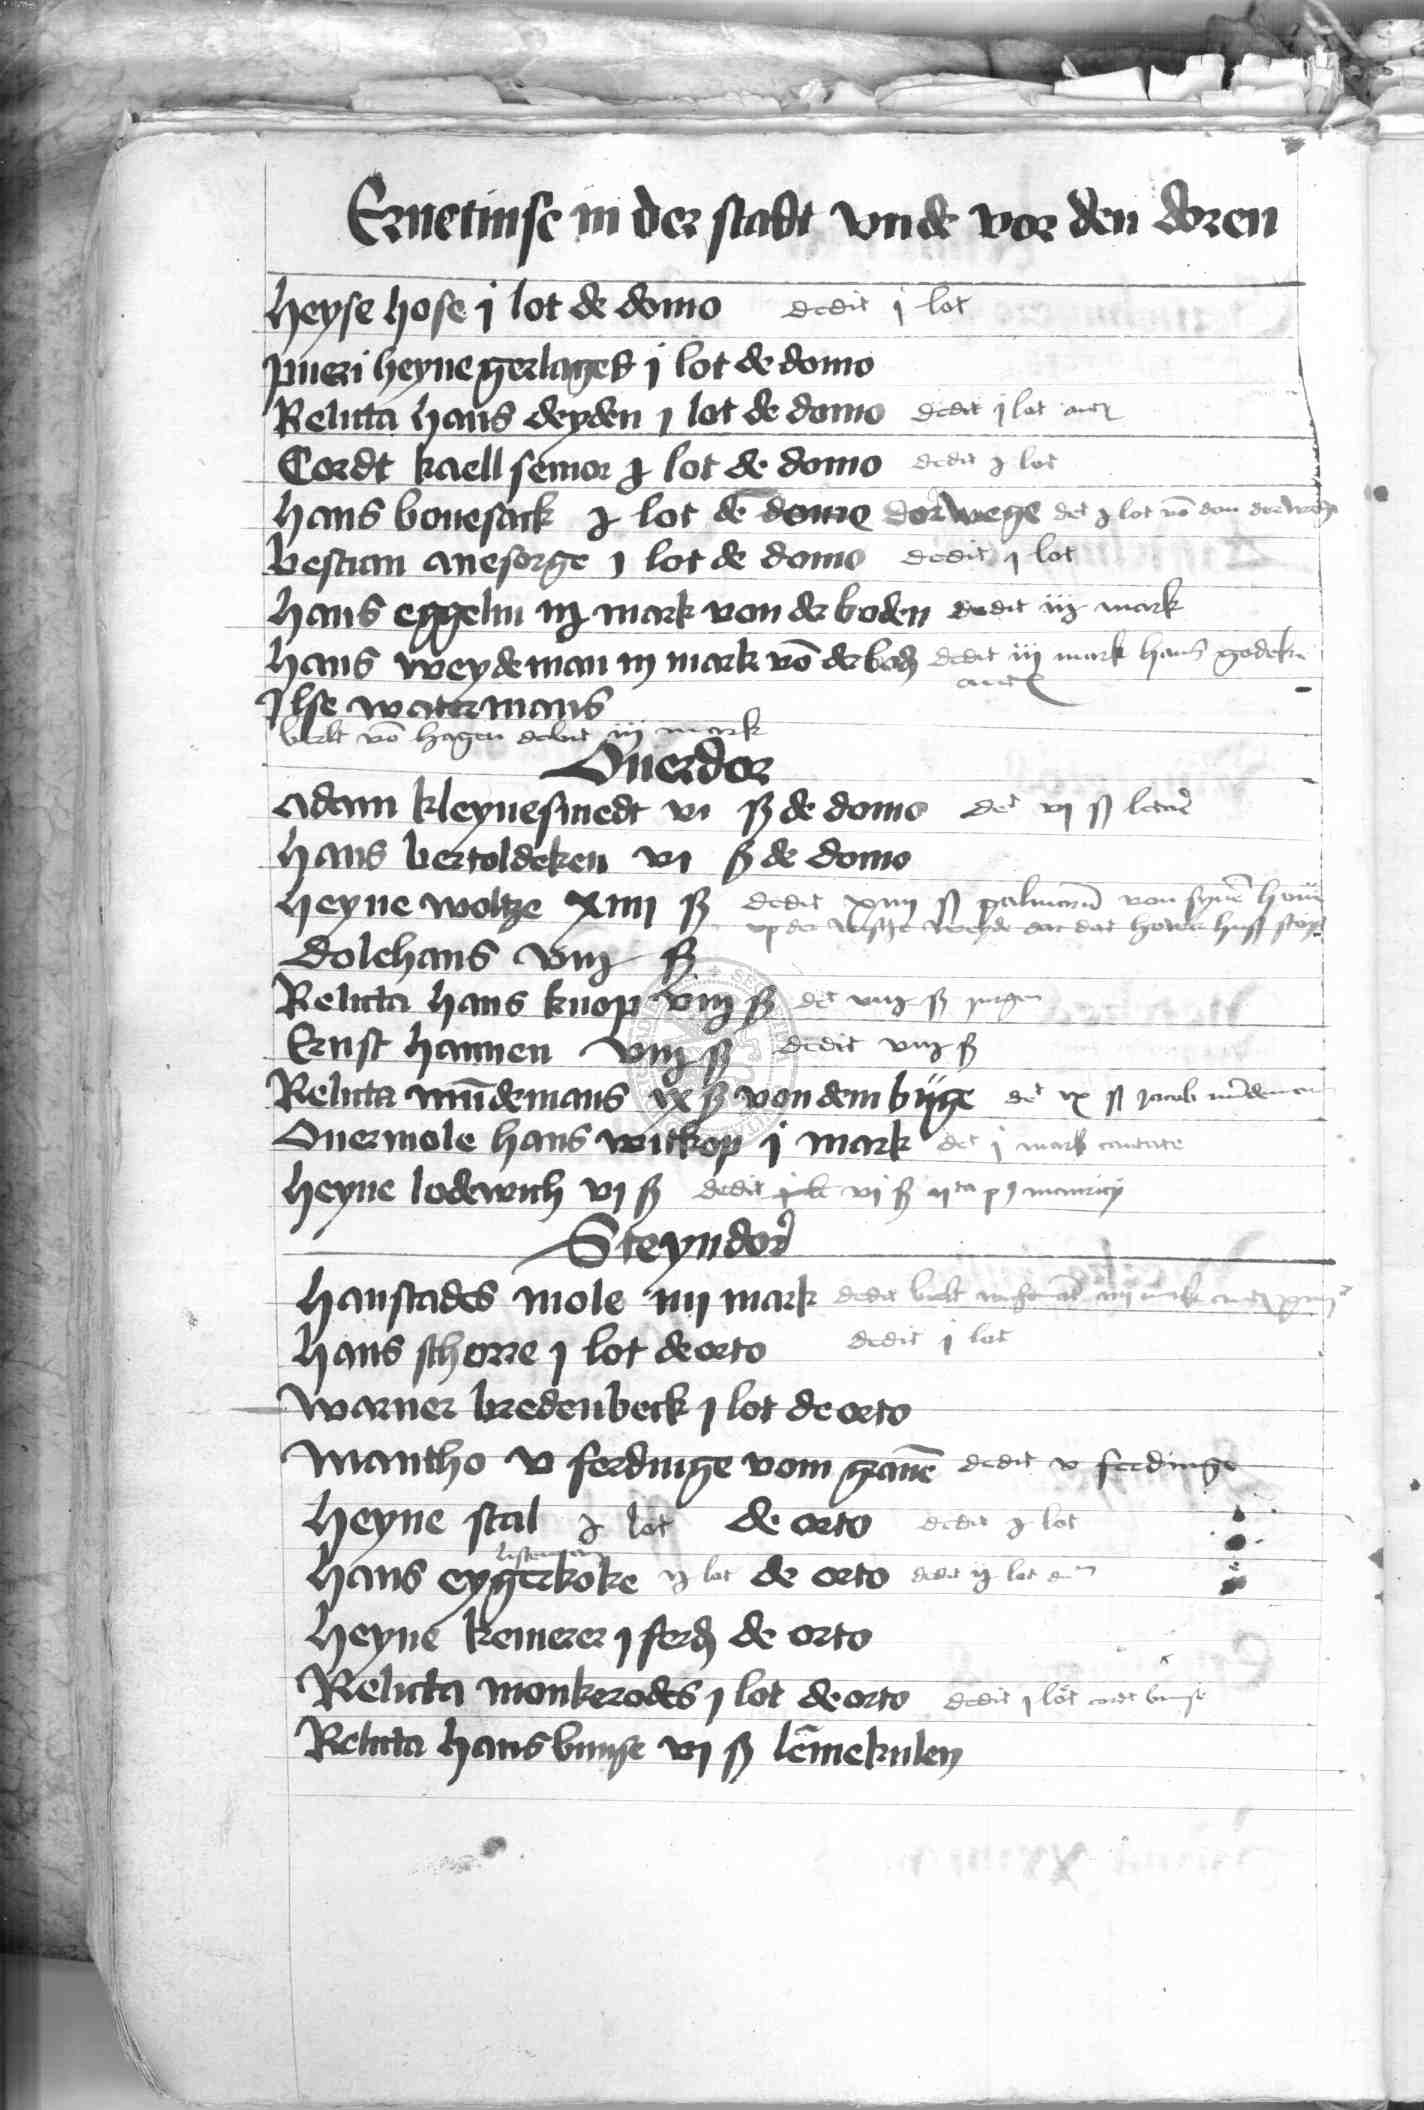 Ernetinse in der stadt vnde vor den doren
Heyse hose j lot de domo dedit j lot
pueri heyne gerlages j lot de domo
Relicta hans deyden j lot de domo dedit j lot
Cordt kaell senior j lot de domo dedit j lot
Hans bouesack j lot de domo dorwege det j lot vō den dorwege
bestian anesorge j lot de domo dedit j lot
Hans eggelin iij mark von der boden dedit iij mark
Hans weydeman iij mark vō der bodē dedit iij mark hans godeken
Ilse watermans
bertt vō hagen dedit iij mark
Ouerdor
Adam kleynesmedt vi ß de domo det vj ß letare
Hans bertoldeken vi ß de domo
Heyne woltze xiiij ß dedit xiiij ß palmarū von synē
vp der weyde dat dat
Dolehans viij ß
Relicta hans knop viij ß det viij ß jurgen
Ernst hannen viij ß dedit viij ß
Relicta mūdemans ix ß von dem büge det ix ß jacob mūdeman
Ouermole hans witkop j mark det j mark cantate
Heyne lodewich vj ß dedit vj ß ij ta p9 mauricij
Steyndor
Hanstades mole iiij mark dedit
Hans schorre j lot de orto dedit j lot
Warner bredenbeck j lot de orto
Mantho v ferdinge vom grauē dedit v ferdinge
Heyne stal j lot de orto dedit j lot
Hans eygerkoke ij lot de orto dedit ij lot
Heyne kemerer j ferdē de orto
Relicta monkerodes j lot de orto dedit j lot cordt bunse
Relicta hans bunse vj ß lēmekulen